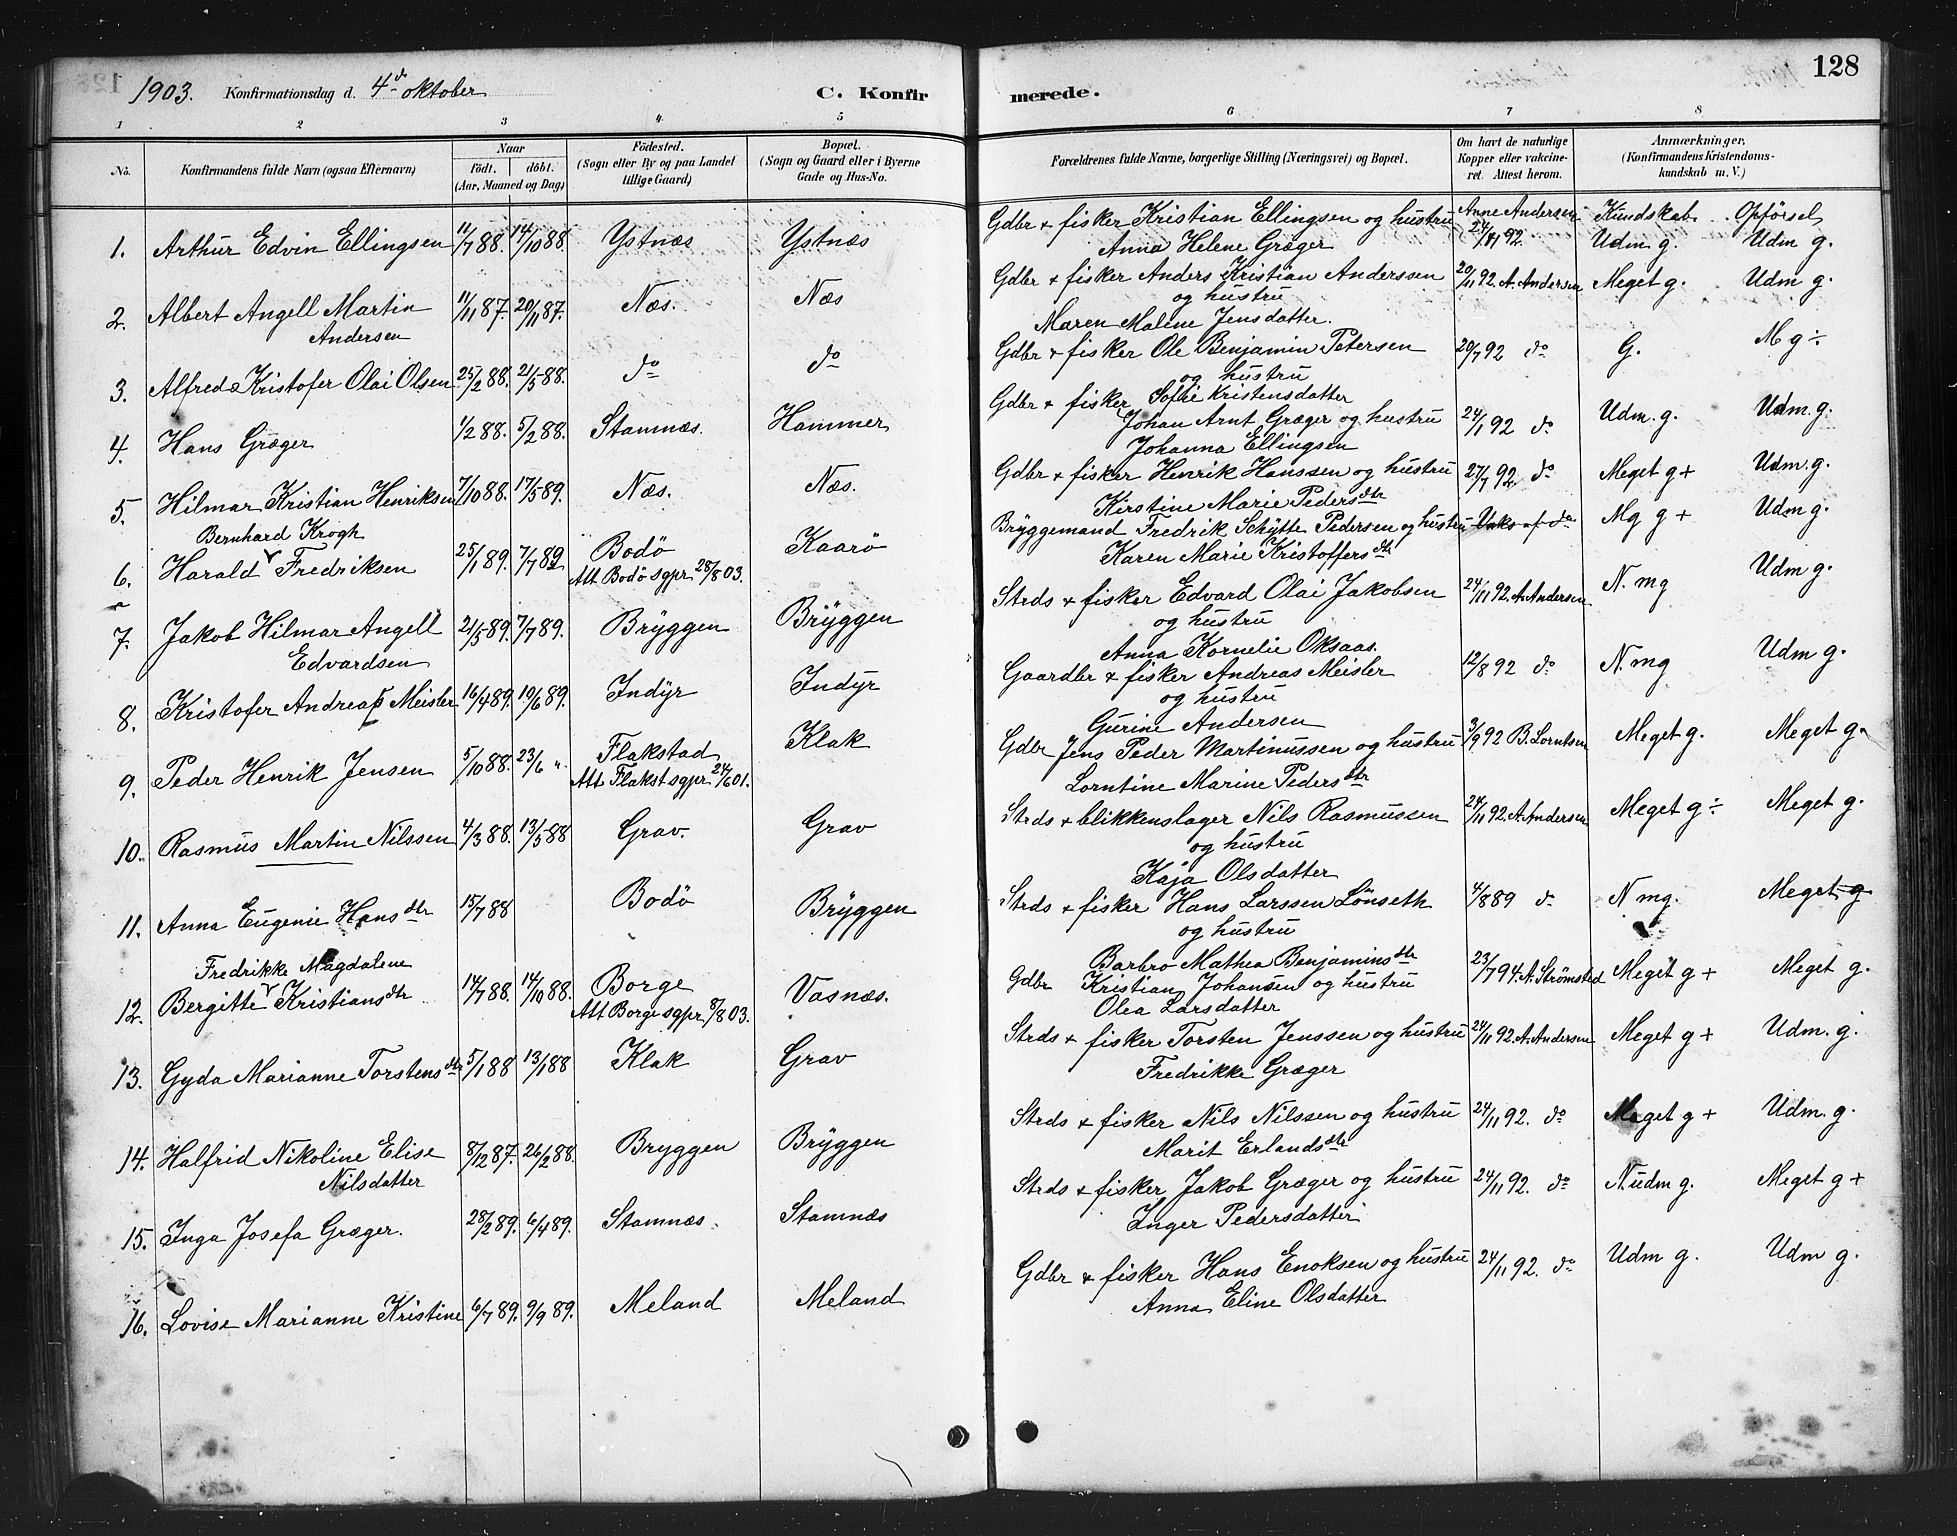 128
1903. Konfirmationsdag d. 4de oktober C. Konfirmerede.
1 2 3 4 5 6 7 8
No. Konfirmandens fulde Navn (ogsaa Efternavn) Naar födt. döbt. (Aar, Maaned og Dag) Födested. (Sogn eller By og paa Landet tillige Gaard) Bopæl. (Sogn og Gaard eller i Byerne Gade og Hus-No. Forældrenes fulde Navne, borgerlige Stilling (Næringsvei) og Bopæl. Om havt de naturlige Kopper eller vakcineret. Attest herom. Anmærkninger. (Konfirmandens Kristendomskundskab m. V.)
Kundskab. Opförsel
1. Arthur Edvin Ellingsen 11/7 88. 14/10 88. Ystnæs Ystnæs Gdbr + fisker Kristian Ellingsen og hustru Anne Andersen
Anna Helene Græger 92. Udm g. Udm g.
2. Albert Angell Martin 11/11 87. 20/11 87. Næs. Næs Gdbr + fisker Anders Kristian Anderssen 20/11 92. A. Andersen Meget g. Udm g.
Andersen og hustru
Maren Malene Jensdatter.
3. Alfred Kristofer Olai Olsen 25/2 88. 21/5 88. do do Gdbr + fisker Ole Benjamin Petersen 20/7 92 do G. M g ÷
og hustru
Sofie Kristensdatter
4. Hans Græger 1/2 88. 5/2 88. Stamnæs. Hammer Gdbr + fisker Johan Arnt Græger og hustru 24/1 92 do Udm. g. Udm. g.
Johanna Ellingsen
5. Hilmar Kristian Henriksen 7/10 88. 17/5 89. Næs. Næs. Gdbr + fisker Henrik Hanssen og hustru 27/7 92. do Meget g + Udm. g.
Kirstine Marie Pedersdtr
Bernhard Krogh
6. Harald Fredriksen 25/1 89. 7/7 89 Bodö Kaarö Bryggemand Fredrik Schytte Pedersen og hustru Vaks af do Mg g + Udm g.
Att Bodö sgpr 28/8 03. Karen Marie Kristoffersdtr
7. Jakob Hilmar Angell 21/5 89. 7/7 89. Bryggen Bryggen Strds + fisker Edvard Olai Jakobsen 24/11 92. A. Andersen N. mg Udm g.
Edvardsen og hustru
Anna Kornelie Oksaas.
8. Kristofer Andreas Meisler 16/4 89. 19/6 89. Indyr Indyr Gaardbr + fisker Andreas Meisler 12/8 92 do N. mg Udm g.
og hustru
Gurine Andersen
9. Peder Henrik Jensen 5/10 88. 23/6 " Flakstad Klak Gdbr Jens Peder Martinussen og hustru 3/9 92 B. Lorntsen Meget g. Meget g.
Att Flakst sgpr 24/6 01. Lorntine Marine Pedersdtr
10. Rasmus Martin Nilssen 4/3 88. 13/5 88 Grav. Grav Strds + blikkenslager Nils Rasmussen 24/11 92. A. Andersen Meget g ÷ Meget g.
og hustru
Kaja Olsdatter
11. Anna Eugenie Hansdtr 15/7 88 Bodö Bryggen Strds + fisker Hans Larssen Lönseth 4/8 89 do N mg. Meget g
og hustru
Barbro Mathea Benjaminsdtr
Fredrikke Magdalene
12. Bergitte Kristiansdtr 14/7 88. 14/10 88. Borge Vasnæs. Gdbr Kristian Johansen og hustru 23/7 94. A. Strömsted Meget g + Meget g.
Att Borge sgpr. 8/8 03. Olea Larsdatter
13. Gyda Marianne Torstensdtr 5/1 88 13/1 88 Klak Grav Strds + fisker Torsten Jenssen og hustru 24/11 92. A. Andersen Meget g + Udm. g.
Fredrikke Græger
14. Halfrid Nikoline Elise 8/12 87. 26/2 88. Bryggen Bryggen Strds + fisker Nils Nilssen og hustru 24/11 92. do Meget g + Udm. g.
Nilsdatter Marit Erlandsdtr
15. Inga Josefa Græger. 28/2 89. 6/4 89. Stamnæs. Stamnæs Strds + fisker Jakob Græger og hustru 24/11 92. do N. udm g. Meget g +
Inger Pedersdatter
16. Lovise Marianne Kristine 6/7 89. 9/9 89. Meland Meland Gdbr + fisker Hans Enoksen og hustru 24/11 92. do Udm g. Udm g.
Anna Eline Olsdatter